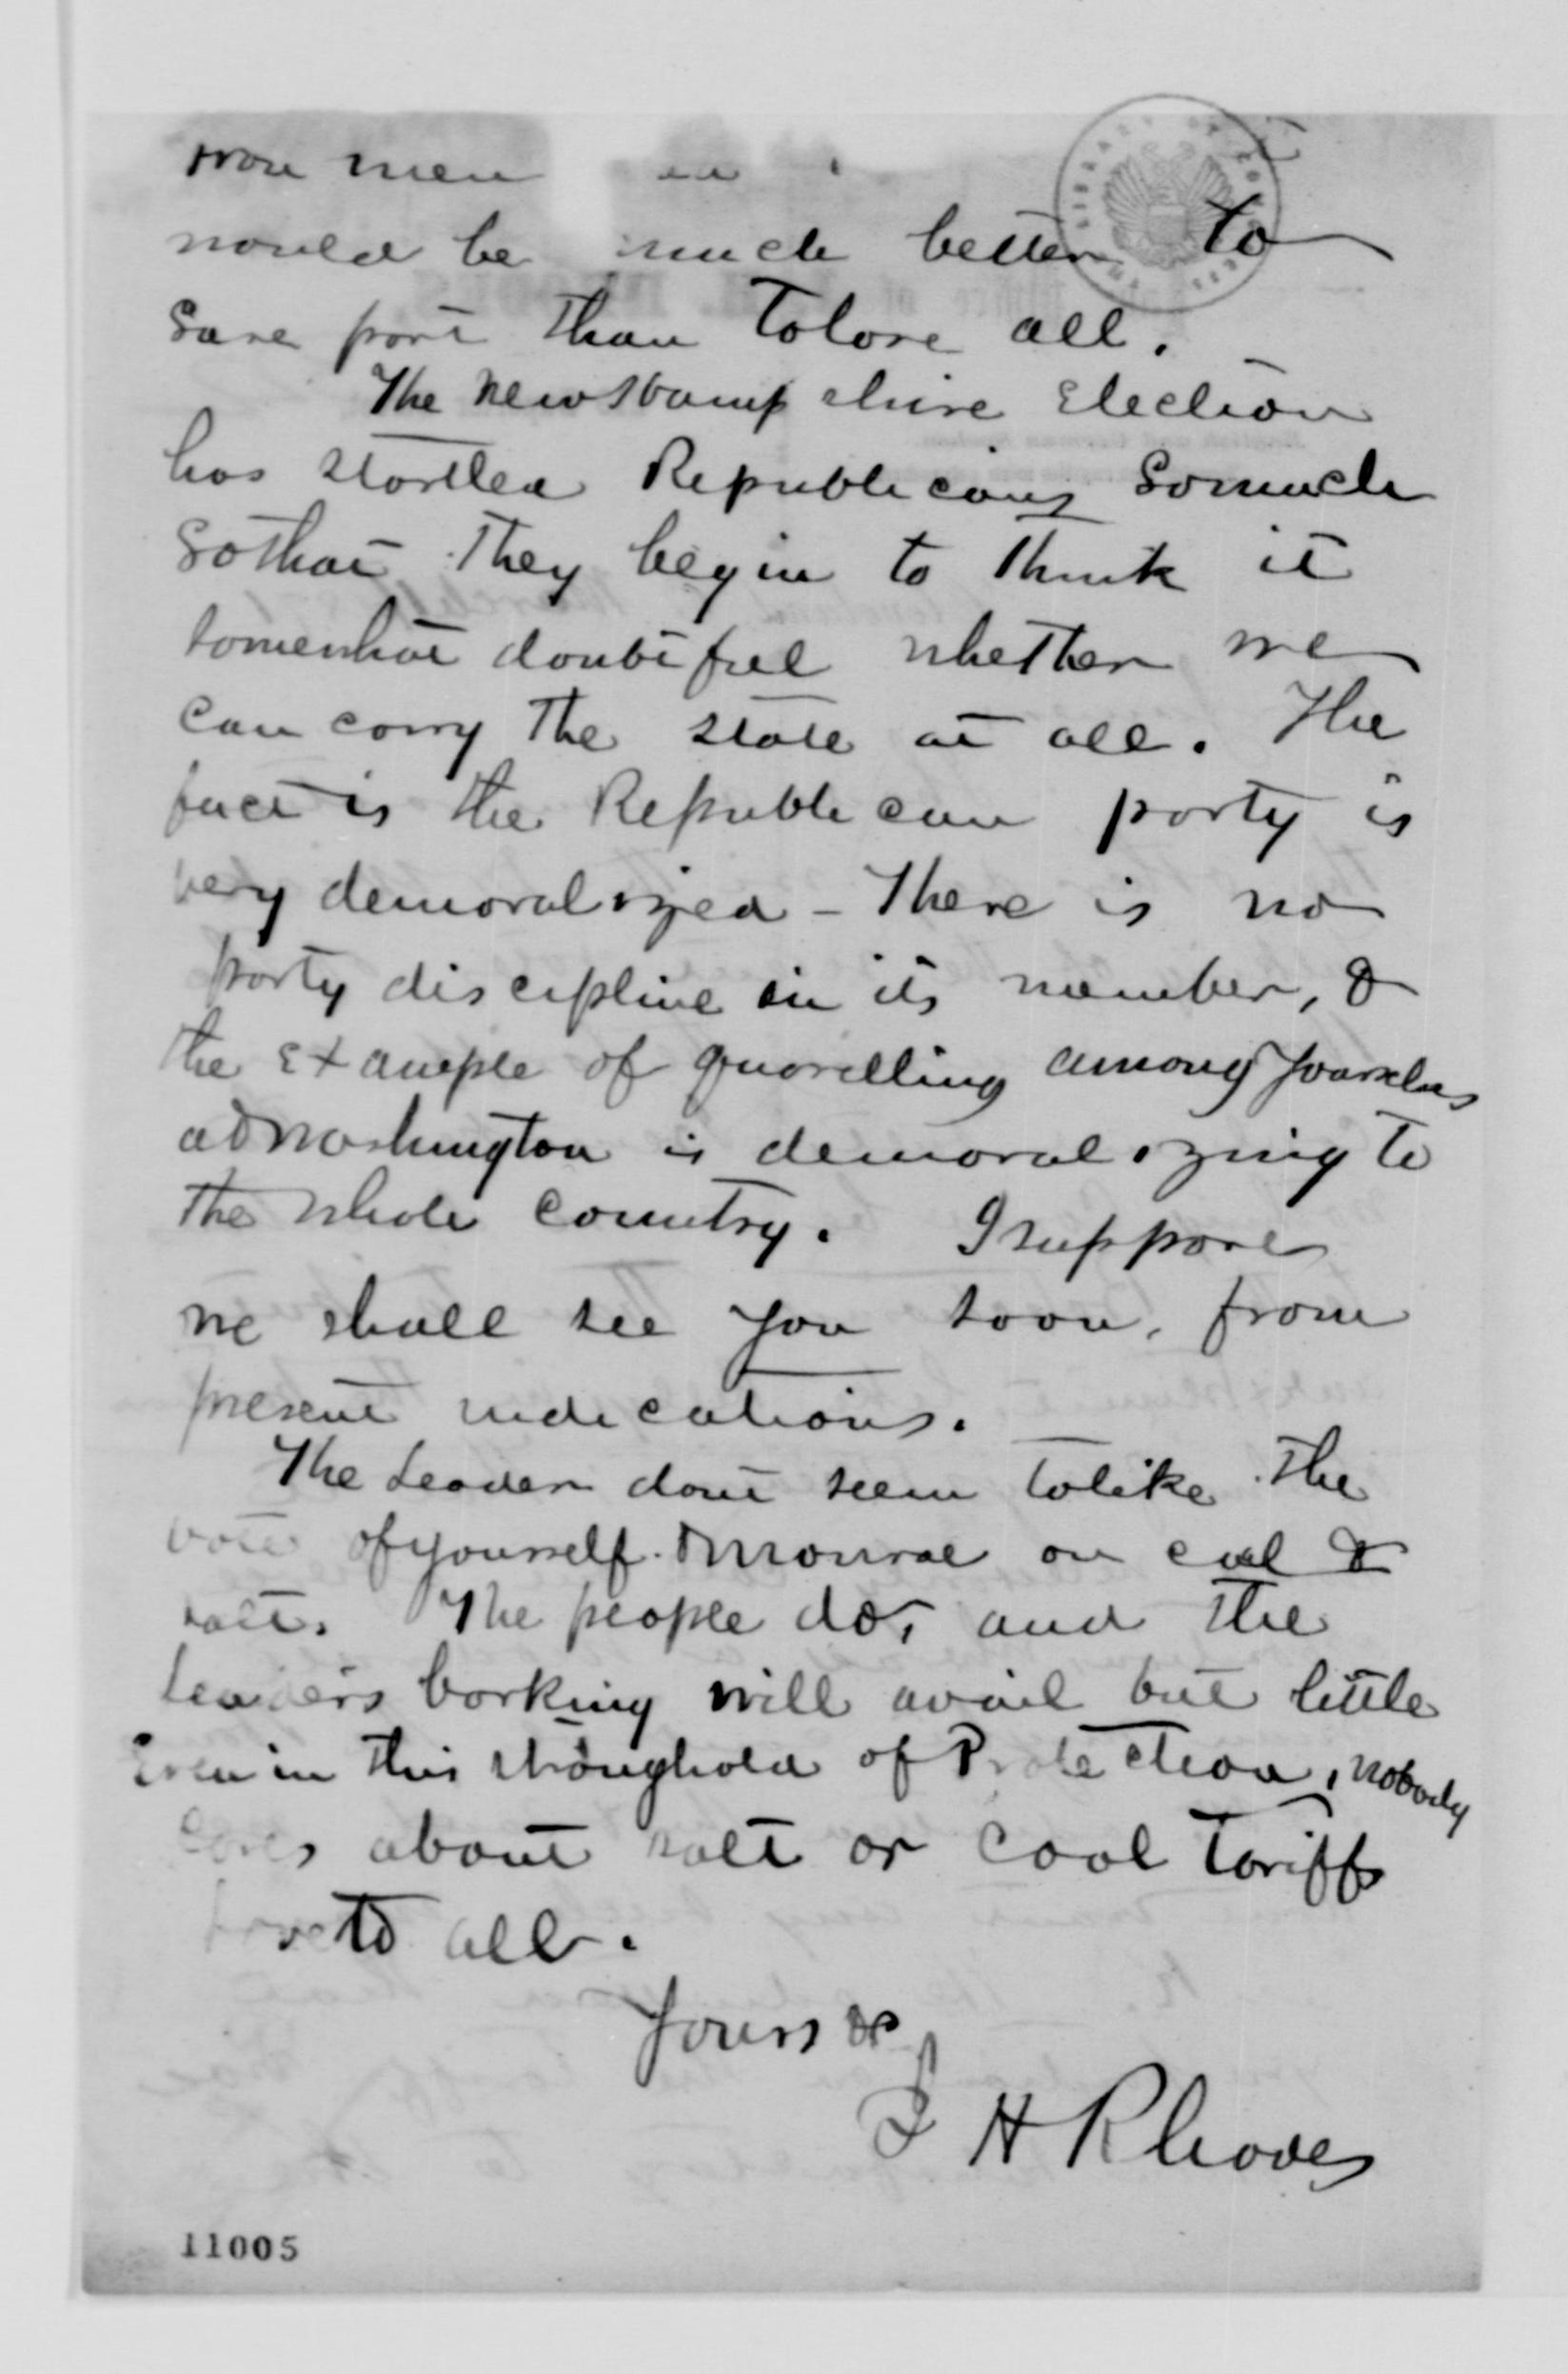 men
would be much better to
save part than to lose all.
The New Hampshire Election
has startled Republicans so much
so that they begin to think it
somewhat doubtful whether we
can carry the state at all. The
fact is the Republican party is
very demoralized - There is no
party discipline in its member, &
the example of quarelling among yourselves
at Washington is demoralizing to
the whole country. I suppose
we shall see you soon, from
present indications.
The Leader dont seem to like the
vote of yourself & Monroe on coal &
salt. The people do, and the
Leaders barking will avail but little
Even in this stronghold of Protection, nobody
cares about salt or coal Tariff
Love to all.
Yours &c
J H Rhodes
11005